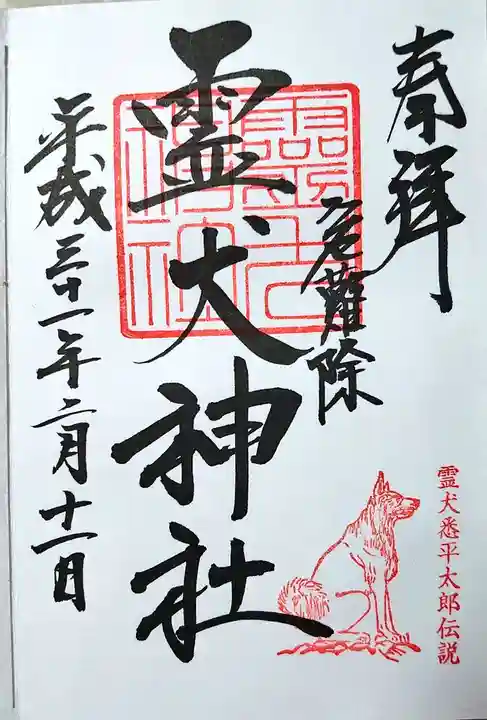 奉拝
危難除
霊犬神社
平成三十一年二月十一日
霊犬悉平太郎伝説